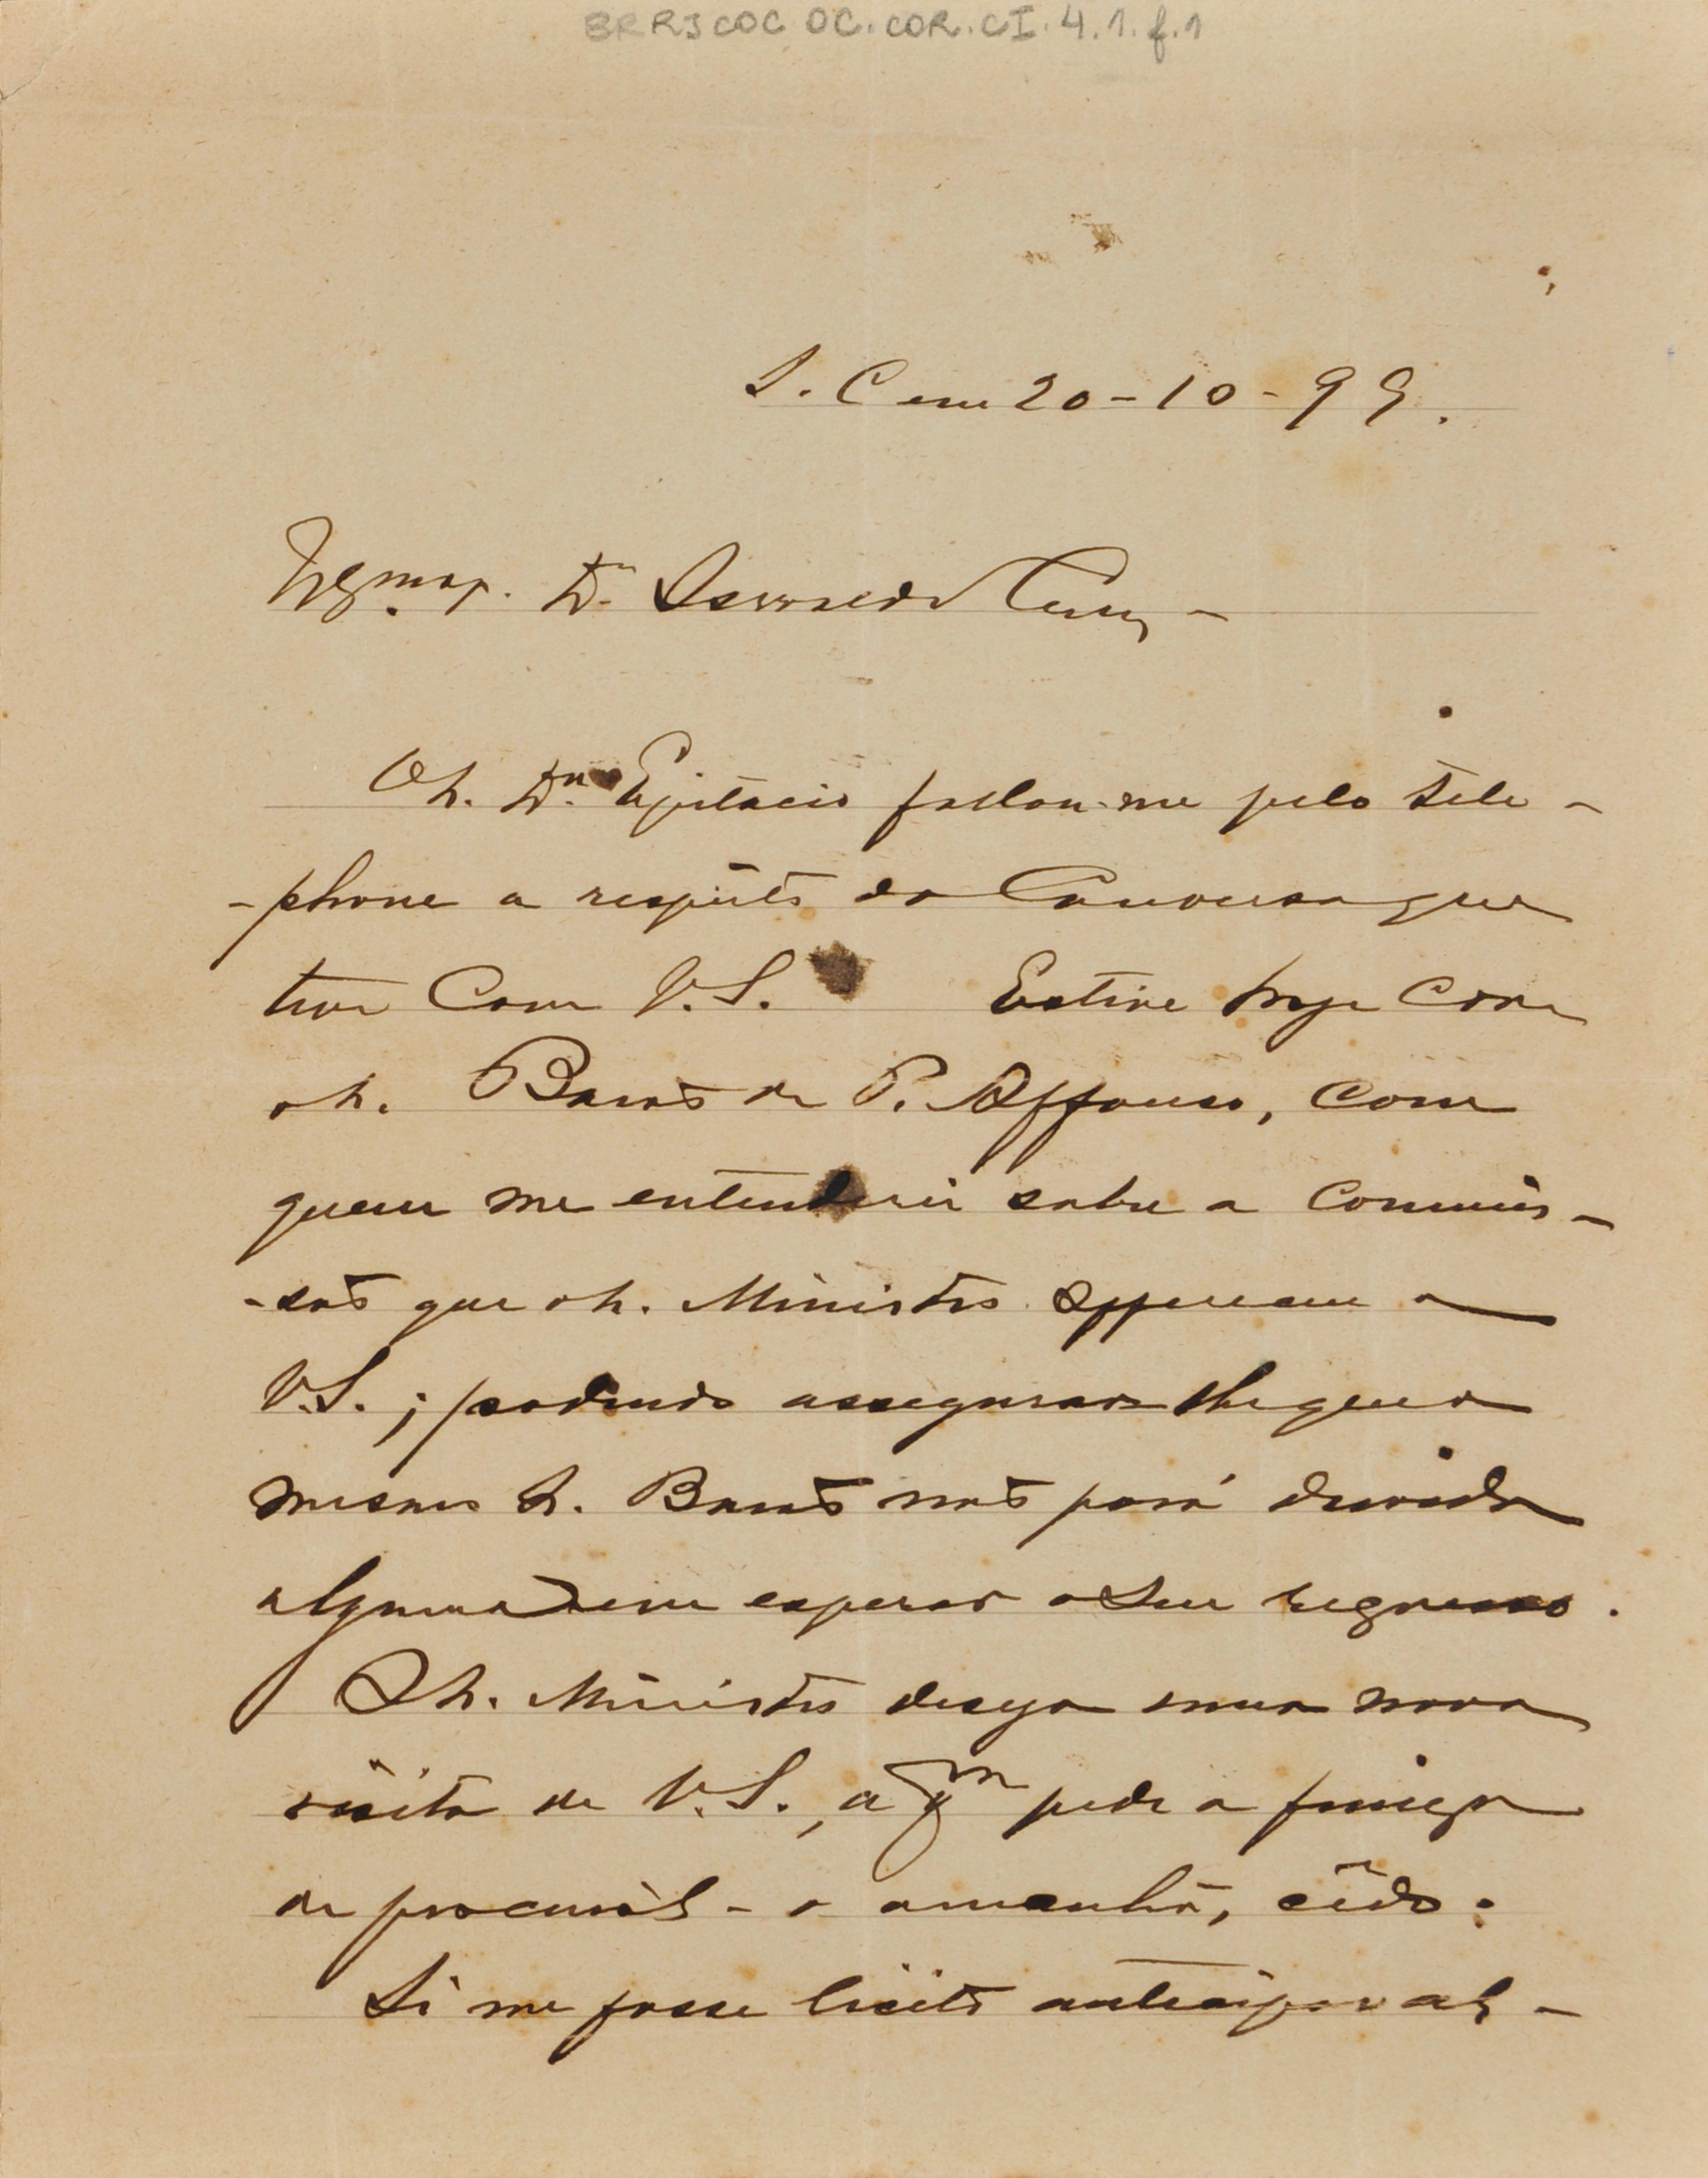 BR RJ COC OC.COR.CI.4.1.f.1
S. C em 20-10-99.
Dr. Oswaldo Cruz -
O Sr. Dr. Epitacio fallou-me pelo tele-
-phone a respeito da Conversa que
tive Com V.S. Estive hoje Com
o Sr. Barão de P. Affonso, Com
quem me entenderei sobre a Commis-
-são que o Sr. Ministro offereceu a
V.S.; podendo assegurar-lhe que o
mesmo Sr. Barão não porá duvida
alguma em esperar o seu regresso.
O Sr. Ministro deseja uma nova
visita de V.S., a qm pede a fineza
de procural-o amanhã, cêdo.
Si me fosse licito antecipar al-